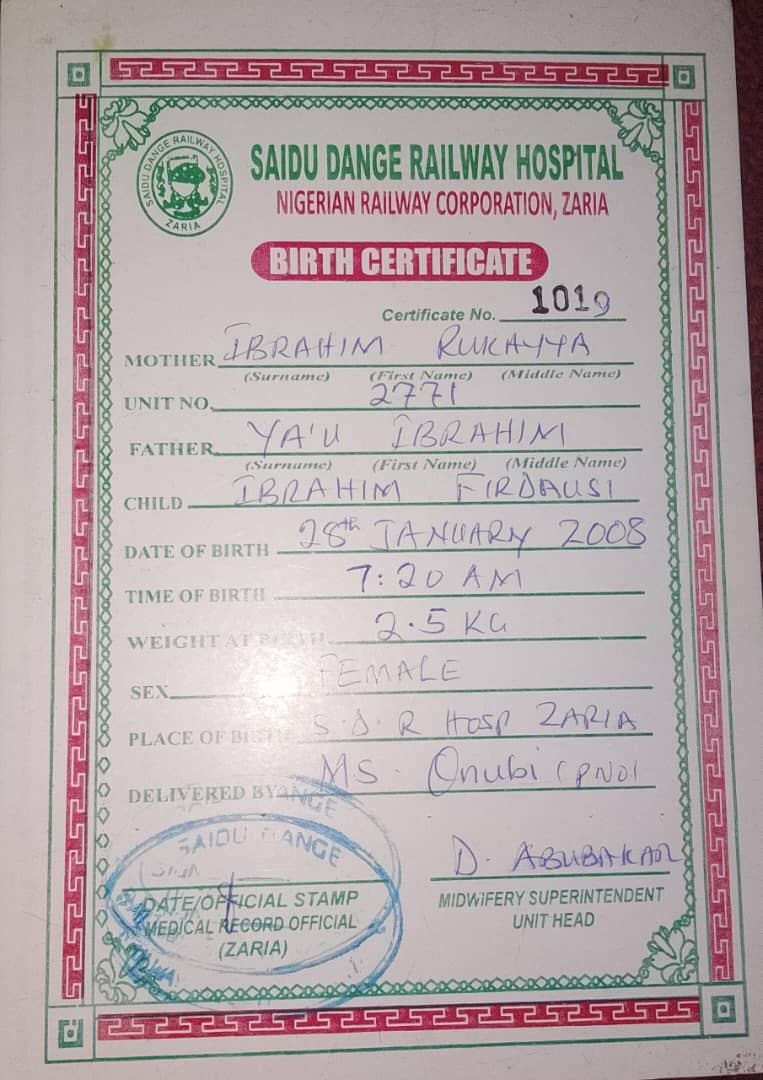 SAIDU DANGE RAILWAY HOSPITAL
ZARIA
SAIDU DANGE RAILWAY HOSPITAL
NIGERIAN RAILWAY CORPORATION, ZARIA
BIRTH CERTIFICATE
Certificate No. 1019
MOTHER IBRAHIM RUKAYYA
(Surname) (First Name) (Middle Name)
UNIT NO. 2771
FATHER YA'U IBRAHIM
(Surname) (First Name) (Middle Name)
CHILD IBRAHIM FIRDAUSI
DATE OF BIRTH 28th JANUARY 2008
TIME OF BIRTH 7:20 AM
WEIGHT AT BIRTH 2.5 KG
SEX FEMALE
PLACE OF BIRTH S.D.R HOSP ZARIA
DELIVERED BY MS. Onubi (PNO)
SAIDU DANGE
D. ABUBAKAR
DATE/OFFICIAL STAMP
MEDICAL RECORD OFFICIAL
(ZARIA)
MIDWIFERY SUPERINTENDENT
UNIT HEAD